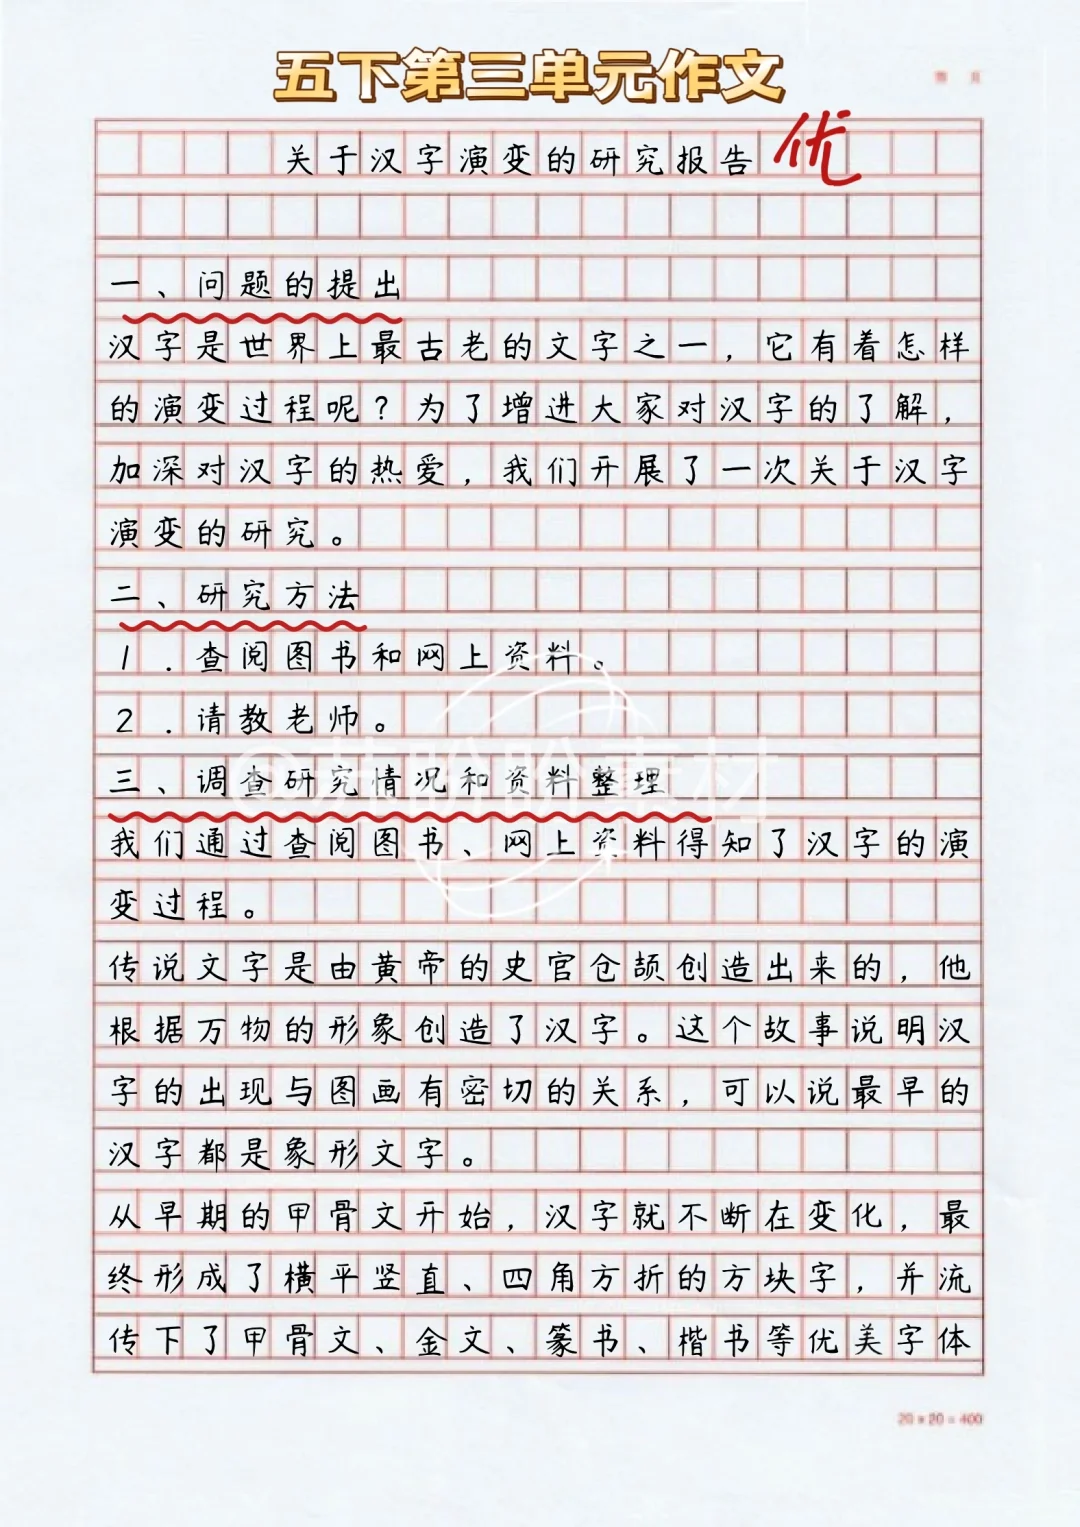 五下第三单元作文
关于汉字演变的研究报告
优
一、问题的提出
汉字是世界上最古老的文字之一，它有着怎样
的演变过程呢？为了增进大家对汉字的了解，
加深对汉字的热爱，我们开展了一次关于汉字
演变的研究。
二、研究方法
1.查阅图书和网上资料。
2.请教老师。
三、调查研究情况和资料整理
我们通过查阅图书、网上资料得知了汉字的演
变过程。
传说文字是由黄帝的史官仓颉创造出来的，他
根据万物的形象创造了汉字。这个故事说明汉
字的出现与图画有密切的关系，可以说最早的
汉字都是象形文字。
从早期的甲骨文开始，汉字就不断在变化，最
终形成了横平竖直、四角方折的方块字，并流
传下了甲骨文、金文、篆书、楷书等优美字体
20×20=400